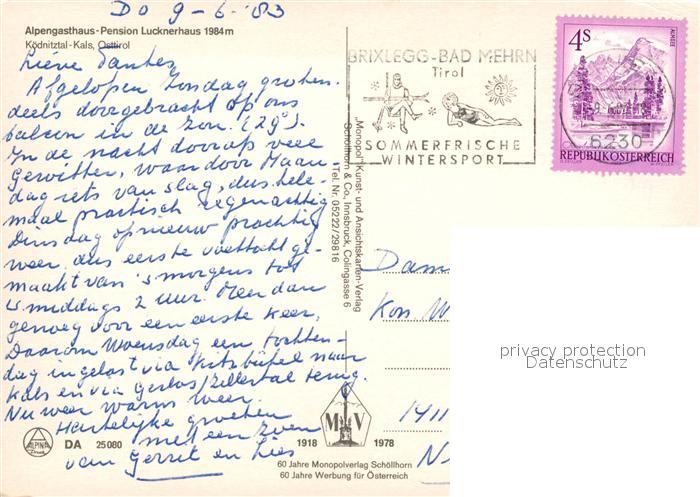 Do 9-6-'83
Alpengasthaus-Pension Lucknerhaus 1984 m
Ködnitztal-Kals, Osttirol
Lieve Tantes,
Afgelopen Zondag groten-
deels doorgebracht op ons
balcon in de zon. (29°).
In de nacht daarop veel
gewitter, waardoor Maan
dag iets van slag, dus hele-
maal practisch regenachtig
Dinsdag opnieuw prachtig
weer, dus eerste voettocht ge-
maakt van 's morgens tot
's middags 2 uur. Meer dan
genoeg voor een eerste keer,
Daarom Woensdag een tochten-
dag ingelast via Kitzbühel naar
Kals en via Gerlos/Zillertal terug.
Nu weer warm weer.
Hartelijke groeten
met een zoen
van Gerret en Lies
BRIXLEGG-BAD MEHRN
Tirol
SOMMERFRISCHE
WINTERSPORT
4S
ALMSEE
6230
REPUBLIK ÖSTERREICH
„Monopol“ Kunst- und Ansichtskarten-Verlag
Schöllhorn & Co., Innsbruck, Colingasse 6
Tel. Nr. 05222/29816
Dam
Kon W
1411
N
privacy protection
Datenschutz
ALPINA
Druck
DA 25080
1918 MV 1978
60 Jahre Monopolverlag Schöllhorn
60 Jahre Werbung für Österreich